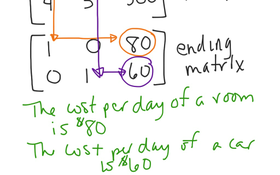 1 0 80 ending
0 1 60 matrix
The cost per day of a room
is $80
The cost per day of a car
is $60